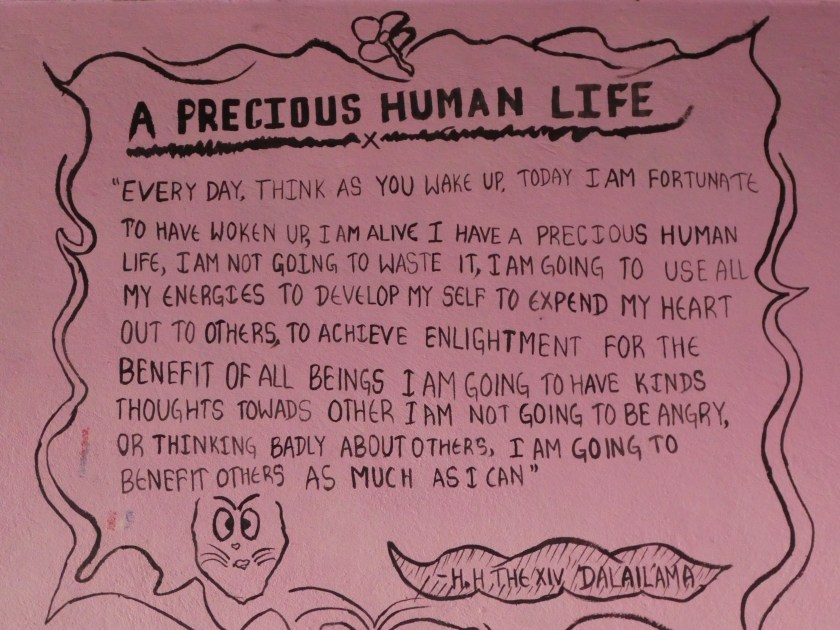 A PRECIOUS HUMAN LIFE
"EVERY DAY, THINK AS YOU WAKE UP, TODAY I AM FORTUNATE
TO HAVE WOKEN UP, I AM ALIVE I HAVE A PRECIOUS HUMAN
LIFE, I AM NOT GOING TO WASTE IT, I AM GOING TO USE ALL
MY ENERGIES TO DEVELOP MY SELF TO EXPEND MY HEART
OUT TO OTHERS, TO ACHIEVE ENLIGHTMENT FOR THE
BENEFIT OF ALL BEINGS I AM GOING TO HAVE KINDS
THOUGHTS TOWADS OTHER I AM NOT GOING TO BE ANGRY,
OR THINKING BADLY ABOUT OTHERS, I AM GOING TO
BENEFIT OTHERS AS MUCH AS I CAN"
-H.H. THE XIV DALAILAMA